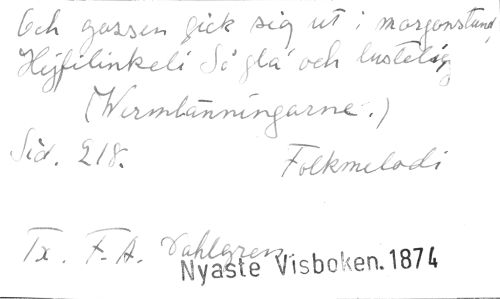 Och gossen gick sig ut i morgonstund,
Hejfilinkeli Så gla' och lustelig
(Wermlänningarne.)
Sid. 218. Folkmelodi
Tx. F. A. Dahlgren.
Nyaste Visboken. 1874